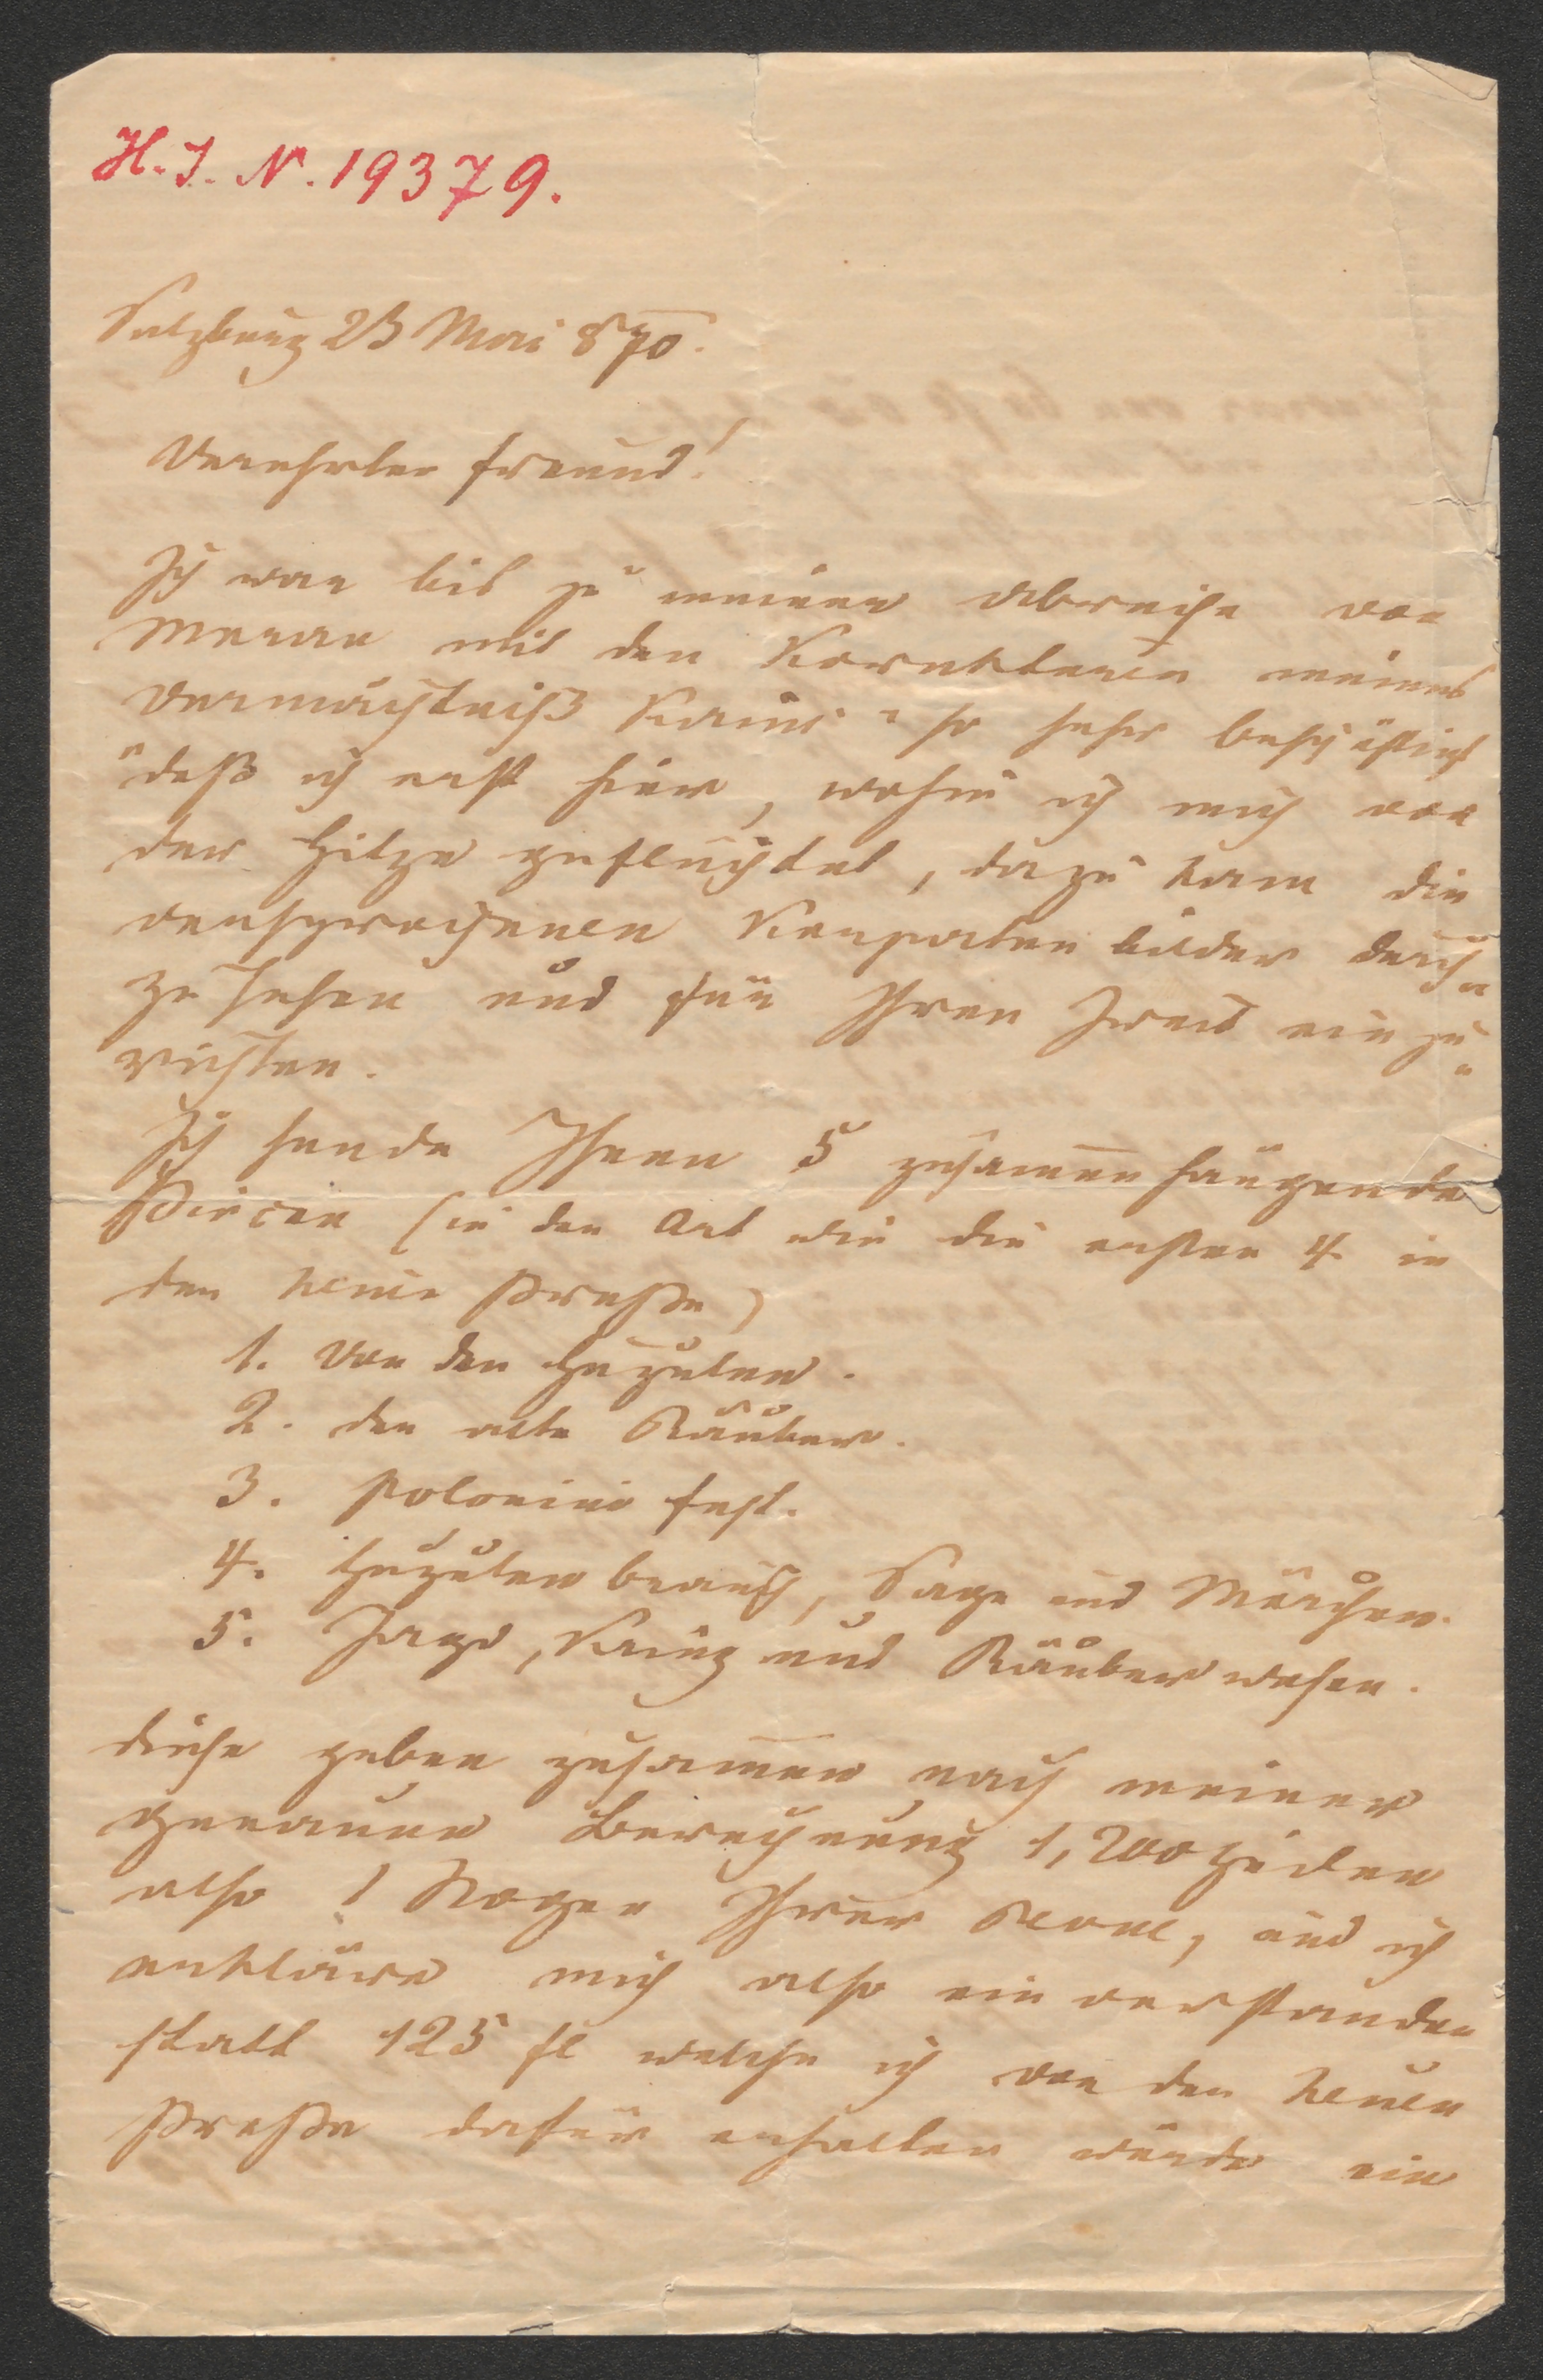 H. I. N. 19379.
Salzburg 23 Mai 870.
Verehrter Freund!
Ich war bis zu meiner Abreise von
Meran mit den Korrekturen meines
Vermächtniß Kains" so sehr beschäftigt
daß ich erst hier, wohin ich mich vor
der Hitze geflüchtet, dazu kam die
versprochenen Karpaten bilder durch-
zu sehen und für Ihren Zweck ein zu-
richten.
Ich sende Ihnen 5 zusammen hängende
Piècen (in der Art wie die ersten 4 in
der neuen Presse)
1. Von den Huzulen.
2. der alte Räuber.
3. Polonina fest.
4. Huzulen brauch, Sage und Märchen.
5. Jagd, Krieg und Räuber wesen.
diese geben zusammen nach meiner
genauen Berechnung 1,200 Zeilen
also 1 Bogen Ihrer, und ich
erkläre mich also ein verstanden
statt 125 fl welche ich von der neuen
Presse dafür erhalten würde ein